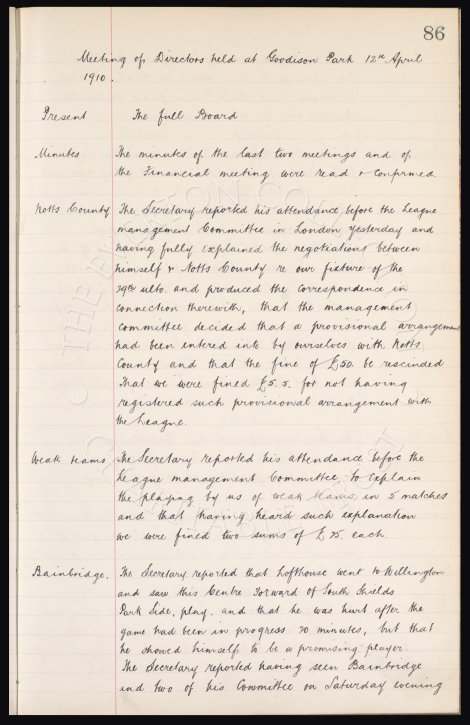 86
Meeting of Directors held at Goodison Park 12th April
1910.
Present The full Board
Minutes The minutes of the last two meetings and of
the Financial meeting were read & confirmed.
Notts County The Secretary reported his attendance before the League
management Committee in London yesterday and
having fully explained the negotiations between
himself & Notts County re our fixture of the
29th ulto. and produced the correspondence in
connection therewith, that the management
committee decided that a provisional arrangement
had been entered into by ourselves with Notts
County and that the fine of £50 be rescinded
That we were fined £5.5. for not having
registered such provisional arrangement with
the League.
Weak teams The Secretary reported his attendance before the
League management Committee, to explain
the playing by us of weak teams in 5 matches
and that having heard such explanation
we were fined two sums of £25 each.
Bainbridge. The Secretary reported that Lofthouse went to Willington
and saw this Centre Forward of South Shields
Park Side, play. and that he was hurt after the
game had been in progress 20 minutes, but that
he showed himself to be a promising player.
The Secretary reported having seen Bainbridge
and two of his Committee on Saturday evening